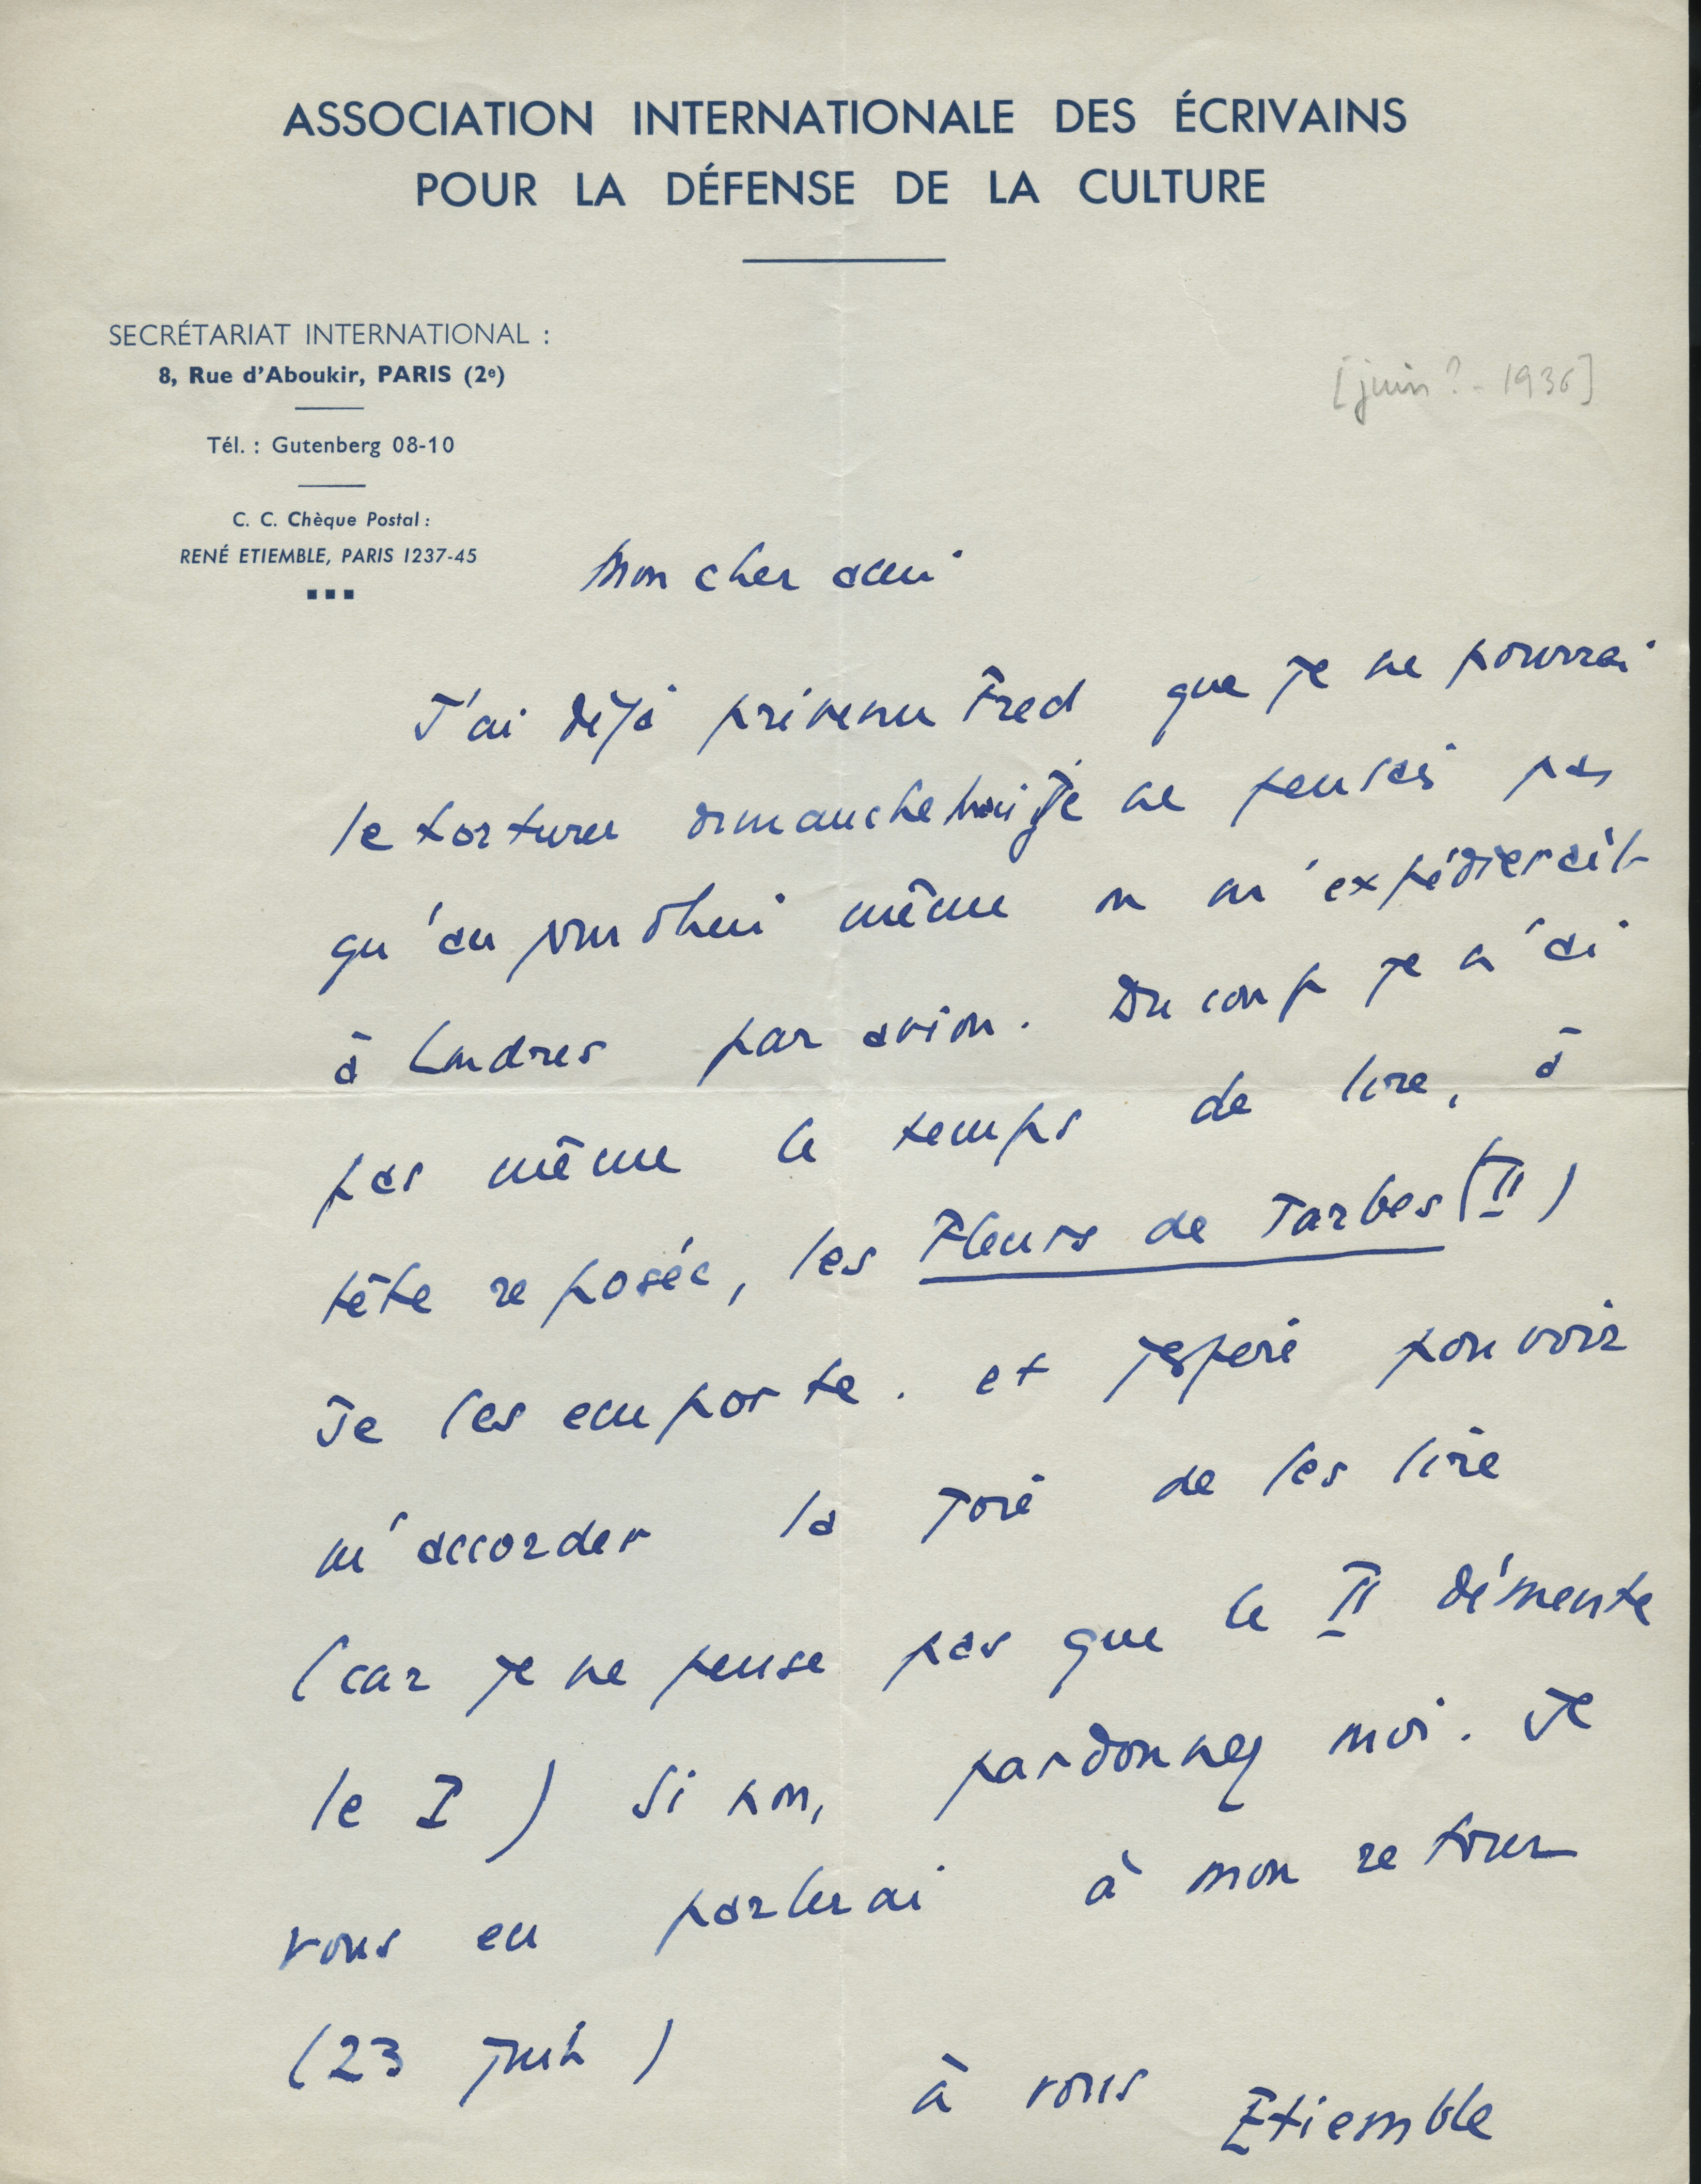 ASSOCIATION INTERNATIONALE DES ÉCRIVAINS
POUR LA DÉFENSE DE LA CULTURE
SECRÉTARIAT INTERNATIONAL :
8, Rue d'Aboukir, PARIS (2e)
Tél. : Gutenberg 08-10
C. C. Chèque Postal :
RENÉ ETIEMBLE, PARIS 1237-45
[juin ? - 1936]
Mon cher ami
J'ai déjà prévenu Fred que je ne pourrai
le torturer dimanche Je ne pensais pas
qu'aujourd'hui même on m'expédierait
à Londres par avion. Du coup je n'ai
pas même le temps de lire, à
tête reposée, les Fleurs de Tarbes (II)
Je les emporte. et j'espère pouvoir
m'accorder la joie de les lire
(car je ne pense pas que le II démente
le I) Si non, pardonnez moi. Je
vous en parlerai à mon retour
(23 juin)
à vous Etiemble